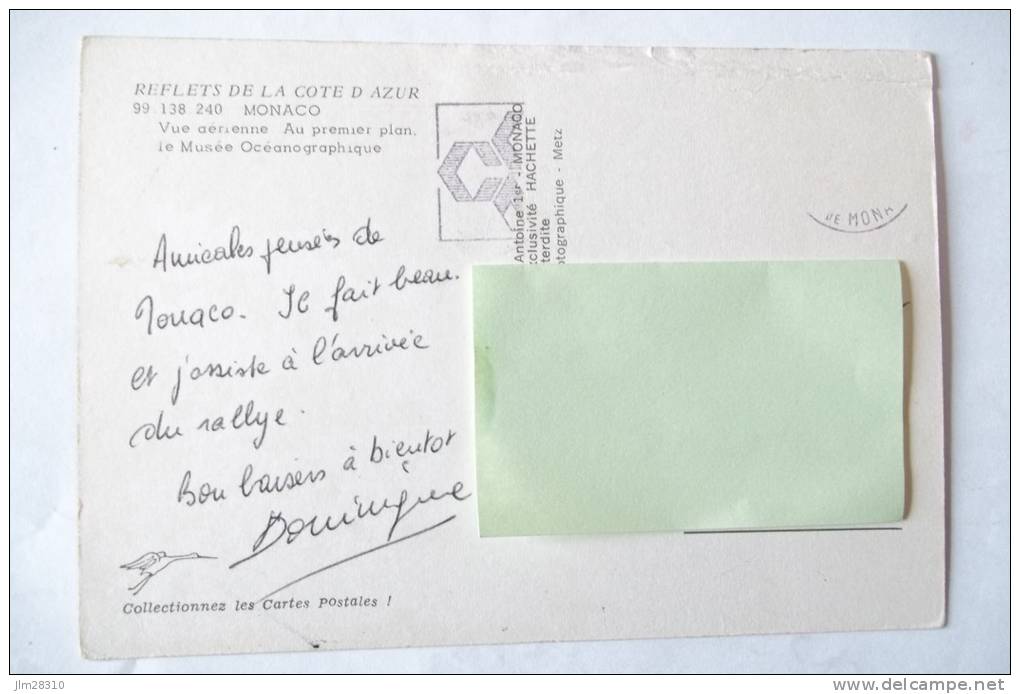 REFLETS DE LA COTE D AZUR
99 138 240 MONACO
Vue aérienne Au premier plan,
le Musée Océanographique
Amicales pensées de
Monaco. Il fait beau.
et j'assiste à l'arrivée
du rallye.
Bon baisers à bientot
Dominique
Collectionnez les Cartes Postales !
Antoine 1er - MONACO
xclusivité HACHETTE
terdite
otographique - Metz
DE MONA
jlm28310
delcampe.net